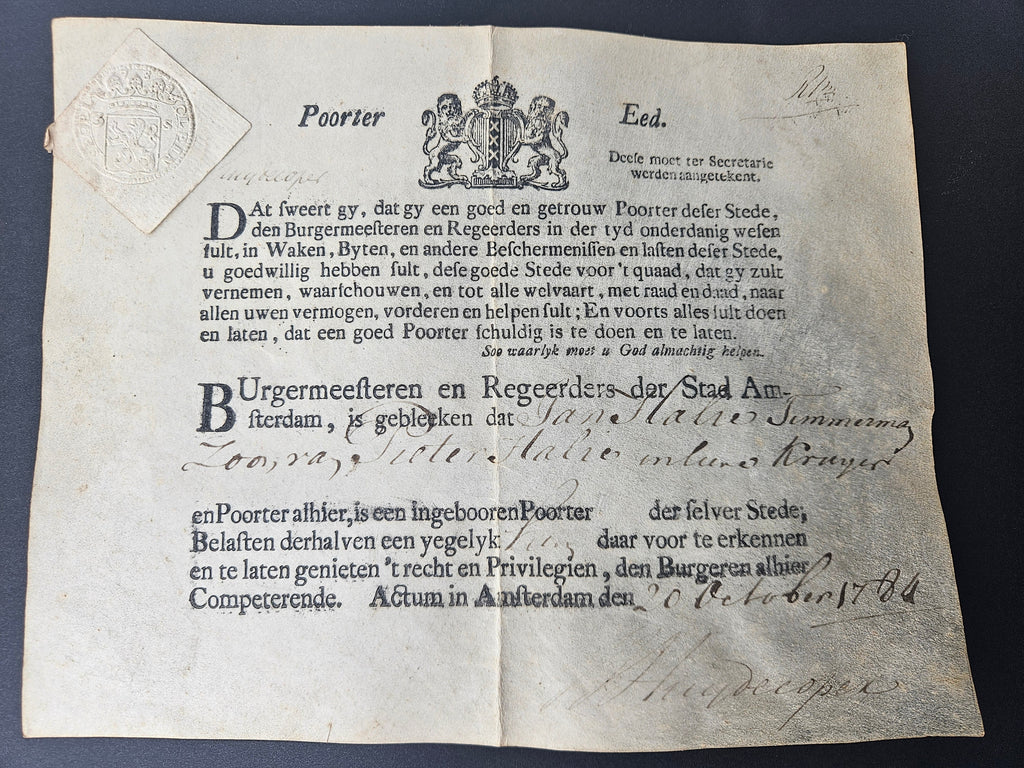 Poorter Eed.
Deese moet ter Secretarie
werden aangetekent.
Huydecoper
DAt sweert gy, dat gy een goed en getrouw Poorter deser Stede,
den Burgermeesteren en Regeerders in der tyd onderdanig wesen
sult, in Waken, Byten, en andere Beschermenissen en lasten deser Stede,
u goedwillig hebben sult, dese goede Stede voor 't quaad, dat gy zult
vernemen, waarschouwen, en tot alle welvaart, met raad en daad, naar
allen uwen vermogen, vorderen en helpen sult; En voorts alles sult doen
en laten, dat een goed Poorter schuldig is te doen en te laten.
Soo waarlyk moet u God almachtig helpen.
BUrgermeesteren en Regeerders der Stad Am-
sterdam, is gebleeken dat Jan Stahe Timmerman
Zoon van Pieter Stahe in leven Kruyer
en Poorter alhier, is een ingebooren Poorter der selver Stede;
Belasten derhalven een yegelyk hem daar voor te erkennen
en te laten genieten 't recht en Privilegien, den Burgeren alhier
Competerende. Actum in Amsterdam den 20 October 1784
Huydecoper